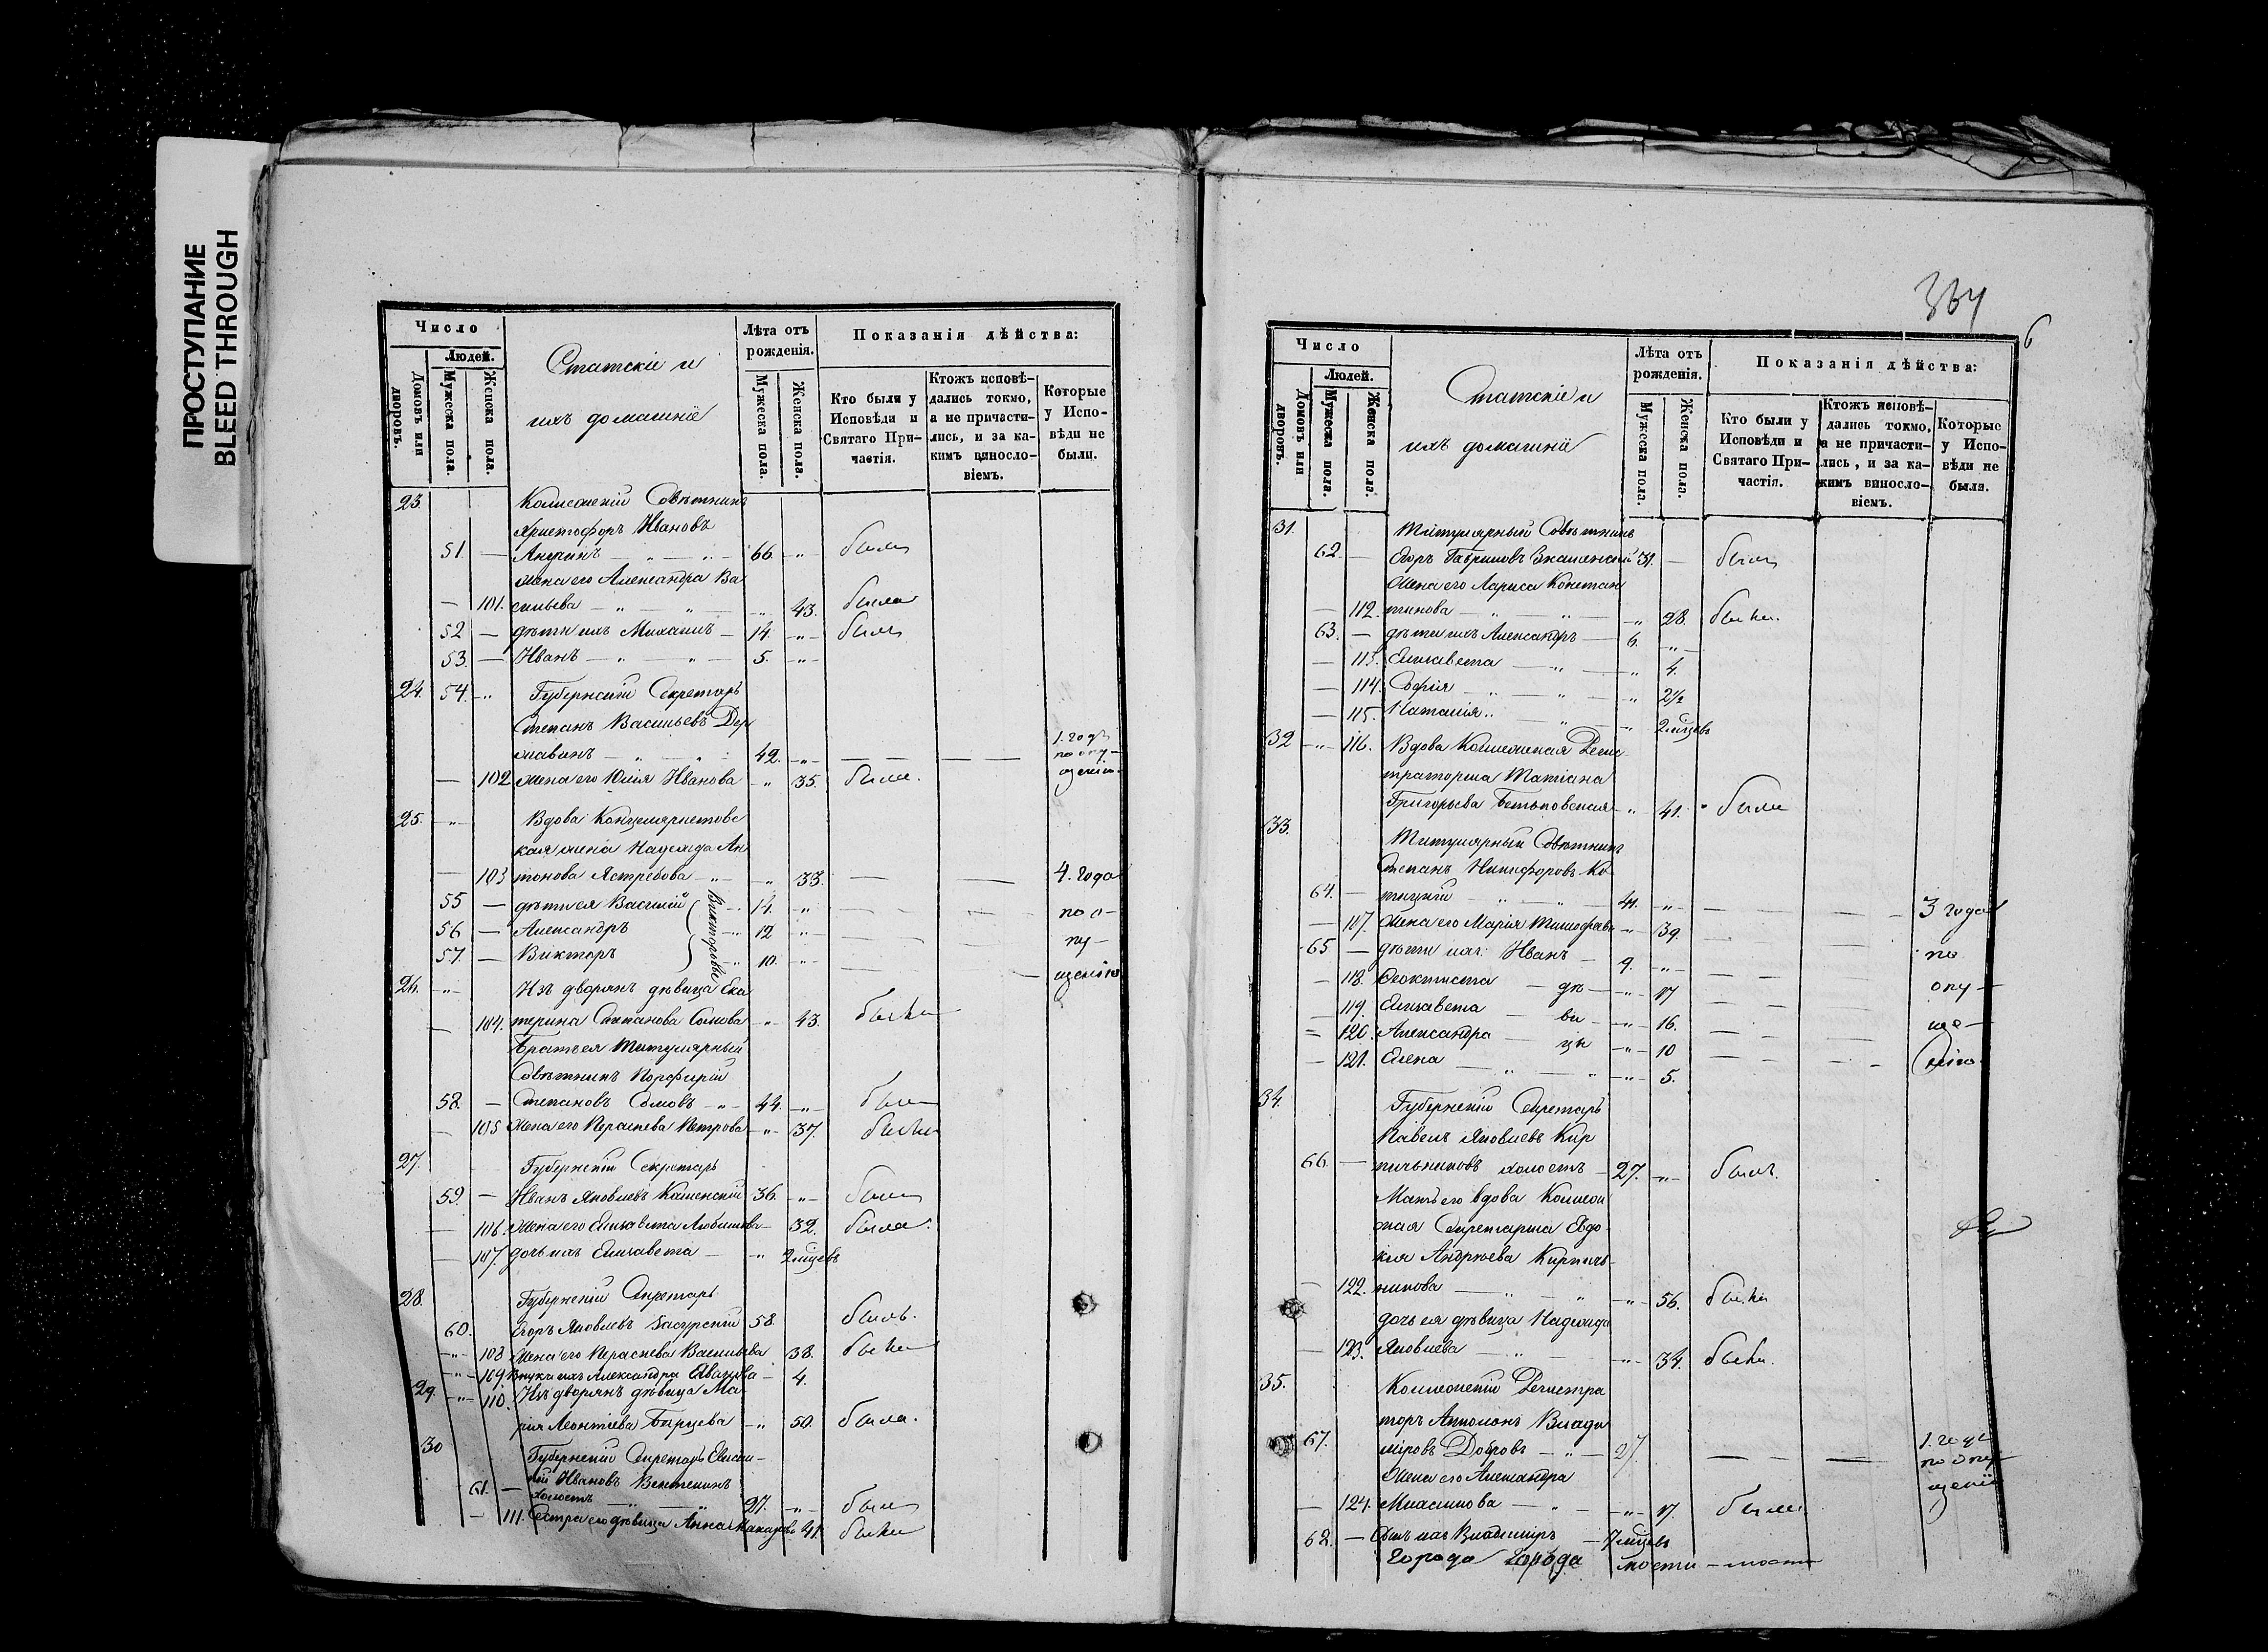 ПРОСТУПАНИЕ
BLEED THROUGH
Число
Людей.
Домовъ или дворовъ.
Мужеска пола.
Женска пола.
Статскіе и
ихъ домашніе
Лѣта отъ рожденія.
Мужеска пола.
Женска пола.
Показанія дѣйства:
Кто были у Исповѣди и Святаго Причастія.
Ктожъ исповѣдались токмо, а не причастились, и за какимъ винословіемъ.
Которые у Исповѣди не были.
23. Коллежскій Совѣтникъ
Христофоръ Ивановъ
51. — 66. былъ
жена его Александра Ва
— 101. сильева — 43. была
52 — дѣти ихъ Михаилъ — 14. былъ
53. — Иванъ — 5.
24. 54. Губернскій Секретарь
Степанъ Васильевъ Дер
жавинъ — 42. — 1. годъ по опущенію.
— 102 жена его Юлія Иванова 35. была.
25. Вдова Канцеляристовс
кая жена Надежда Ан
— 103 тонова Ястребова 33. — 4. года
55 — дѣти ея Василій 14. по о-
56 — Александръ 12 пу-
57. — Викторъ 10. щенію
Викторовы
26. Изъ дворянъ дѣвица Ека
— 104. терина Степанова Сомова 43. была
Братъ ея Титулярный
Совѣтникъ Порфирій
58. — Степановъ Сомовъ 44. былъ
— 105 жена его Параскева Петрова 37. была
27. Губернскій Секретарь
59. — Иванъ Яковлевъ Каменскій 36. былъ
— 106. жена его Елисавета 32. была.
— 107. дочь ихъ Елисавета — 2 мѣсцовъ
28. Губернскій Секретарь
60. Егоръ Яковлевъ 58. былъ.
108 жена его Параскева Васильева 38. была
109. Внука ихъ Александра Иванова — 4.
29 110. Изъ дворянъ дѣвица Ма
рія Леонтіева 50. была.
30 Губернскій Секретарь
61. — Ивановъ
холостъ 27. былъ
— 111. Сестра его дѣвица Анна 41. была
364
6
Число
Людей.
Домовъ или дворовъ.
Мужеска пола.
Женска пола.
Статскіе и
ихъ домашніе
Лѣта отъ рожденія.
Мужеска пола.
Женска пола.
Показанія дѣйства:
Кто были у Исповѣди и Святаго Причастія.
Ктожъ исповѣдались токмо, а не причастились, и за какимъ винословіемъ.
Которые у Исповѣди не были.
31. Титулярный Совѣтникъ
62. — Гавриловъ Знаменскій 31. — былъ
жена его Лариса Констан
— 112. тинова 28. была.
63. — дѣти ихъ Александръ — 6.
— 113. Елисавета 4.
— 114. Софія 2½
— 115. Наталія 2 мѣсцовъ
32 116. Вдова Коллежская Регис
траторша Татіана
Григорьева 41. была
33. Титулярный Совѣтникъ
Степанъ Никифоровъ Ко
64. — 41. — 3 года
— 117. жена его Марія Тимофеева 39. по
65 — дѣти ихъ: Иванъ — 9. опу-
— 118. Феоктиста — дѣ — 17 ще-
— 119. Елисавета — ви — 16. нію.
— 120. Александра — цы 10
— 121. Елена 5.
34. Губернскій Секретарь
Павелъ Яковлевъ Кир
66. — пичниковъ холостъ — 27. былъ.
Мать его вдова Коллеж
ская Секретарша Евдо
кія Андреева Кирпич-
— 122. никова 56. была
дочь ея дѣвица Надежда
— 123. Яковлева 34. была.
35. Коллежскій Регистра
торъ Апполонъ Влади
67. міровъ Добровъ — 27. — 1. годъ по опущенію
жена его Александра
— 124. 17. была
68. — Сынъ ихъ Владиміръ — 7 мѣсцовъ
города города